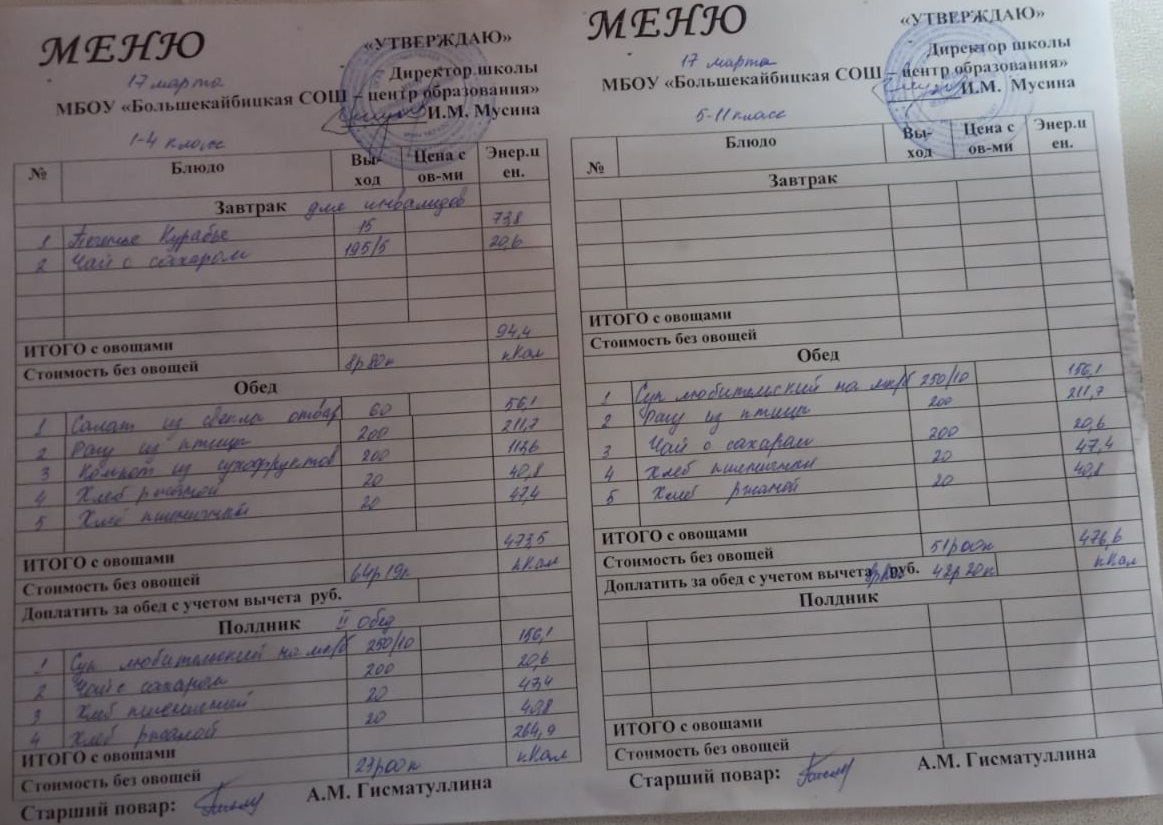 МЕНЮ
«УТВЕРЖДАЮ»
17 марта
Директор школы
МБОУ «Большекайбицкая СОШ – центр образования»
И.М. Мусина
1-4 класс
№ Блюдо Вы-ход Цена с ов-ми Энер.ц ен.
Завтрак для инвалидов
1 Печенье Курабье 15 73,8
2 Чай с сахаром 195/5 20,6
ИТОГО с овощами 94,4
Стоимость без овощей 8р80к кКал
Обед
1 Салат из свекла отвар 60 56,1
2 Рагу из птицы 200 211,7
3 Компот из сухофруктов 200
4 Хлеб ржаной 20 40,8
5 Хлеб пшеничный 20 47,4
ИТОГО с овощами 473,5
Стоимость без овощей 64р19к кКал
Доплатить за обед с учетом вычета руб.
Полдник II Обед
1 Суп любительский на мк/б 250/10 156,1
2 Чай с сахаром 200 20,6
3 Хлеб пшеничный 20 47,4
4 Хлеб ржаной 20 40,8
ИТОГО с овощами 264,9
Стоимость без овощей 23р00к кКал
Старший повар: А.М. Гисматуллина
МЕНЮ
«УТВЕРЖДАЮ»
17 марта
Директор школы
МБОУ «Большекайбицкая СОШ – центр образования»
И.М. Мусина
5-11 класс
№ Блюдо Вы-ход Цена с ов-ми Энер.ц ен.
Завтрак
ИТОГО с овощами
Стоимость без овощей
Обед
1 Суп любительский на мк/б 250/10 156,1
2 Рагу из птицы 200 211,7
3 Чай с сахаром 200 20,6
4 Хлеб пшеничный 20 47,4
5 Хлеб ржаной 20 40,8
ИТОГО с овощами 476,6
Стоимость без овощей 51р00к кКал
Доплатить за обед с учетом вычета руб. 42р20к
Полдник
ИТОГО с овощами
Стоимость без овощей
Старший повар: А.М. Гисматуллина